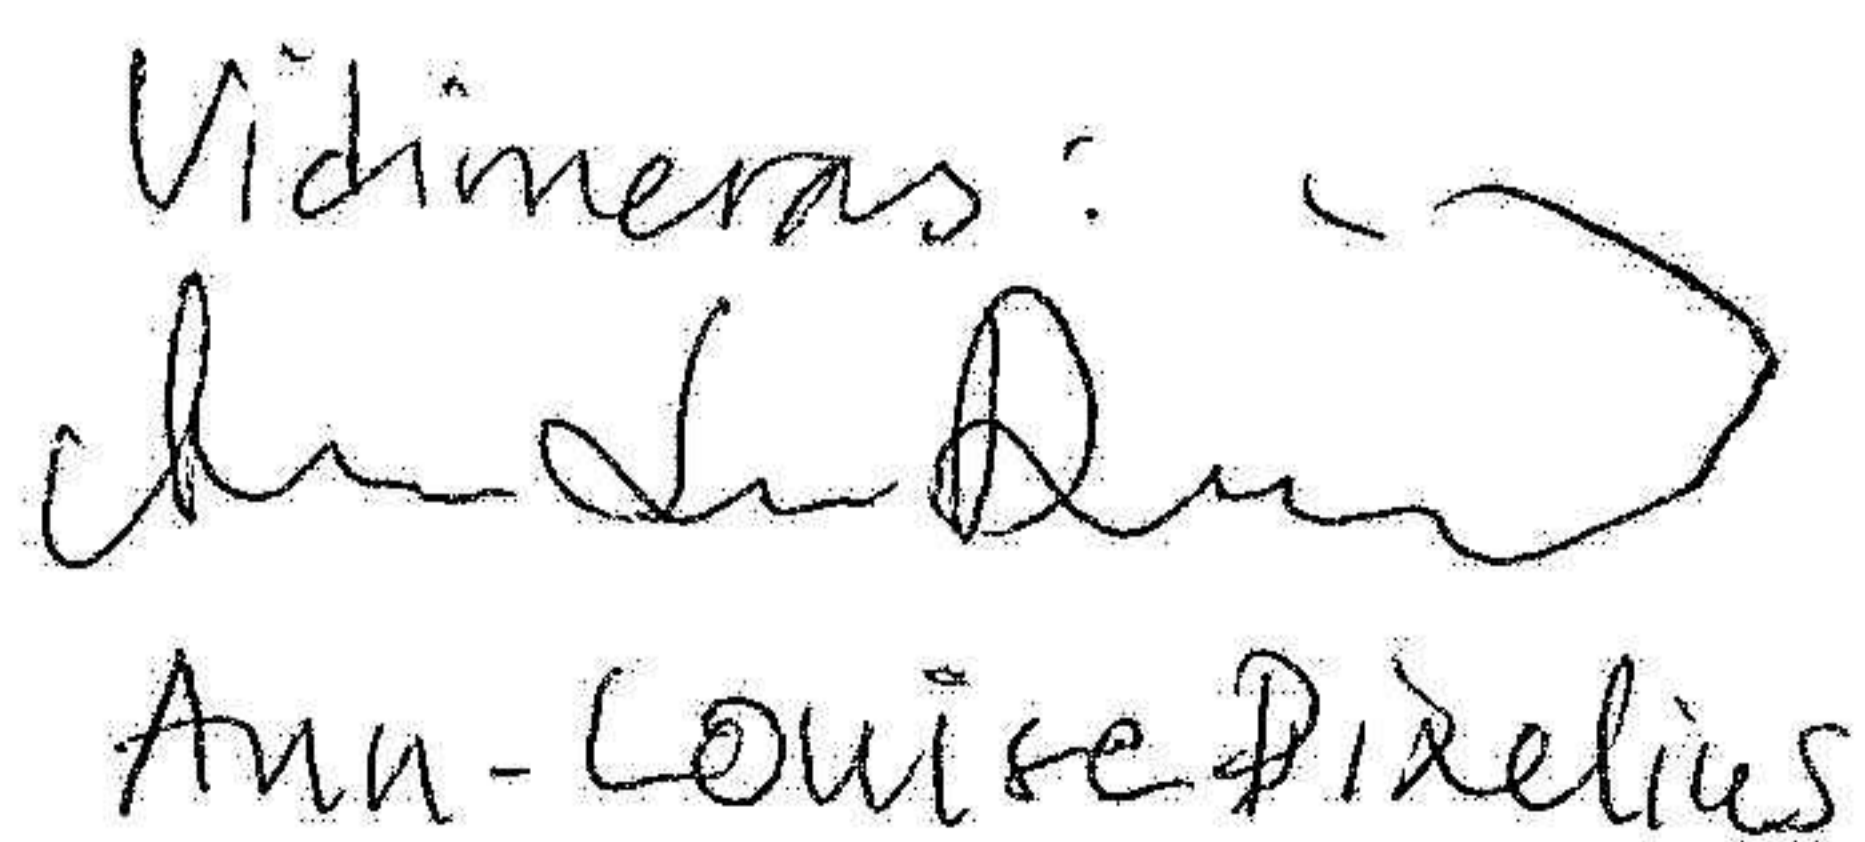 Vidimeras:
Ann-Louise Dixelius